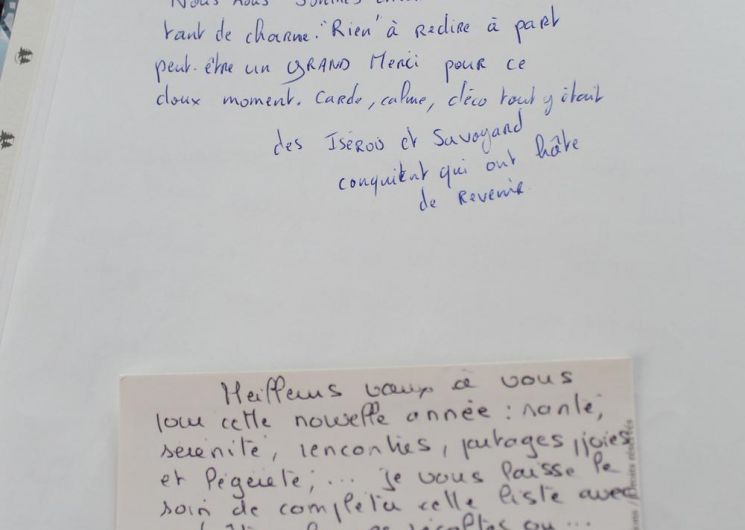 Nous nous sommes
tant de charme. "Rien" à redire à part
peut-être un GRAND Merci pour ce
doux moment. Cardo, calme, déco tout y était
des Isérois et Savoyard
conquient qui ont hâte
de Revenir
Meilleurs vœux à vous
pour cette nouvelle année : santé,
sérénité, rencontres, partages, joies
et légèreté, ... je vous laisse le
soin de compléter cette liste avec